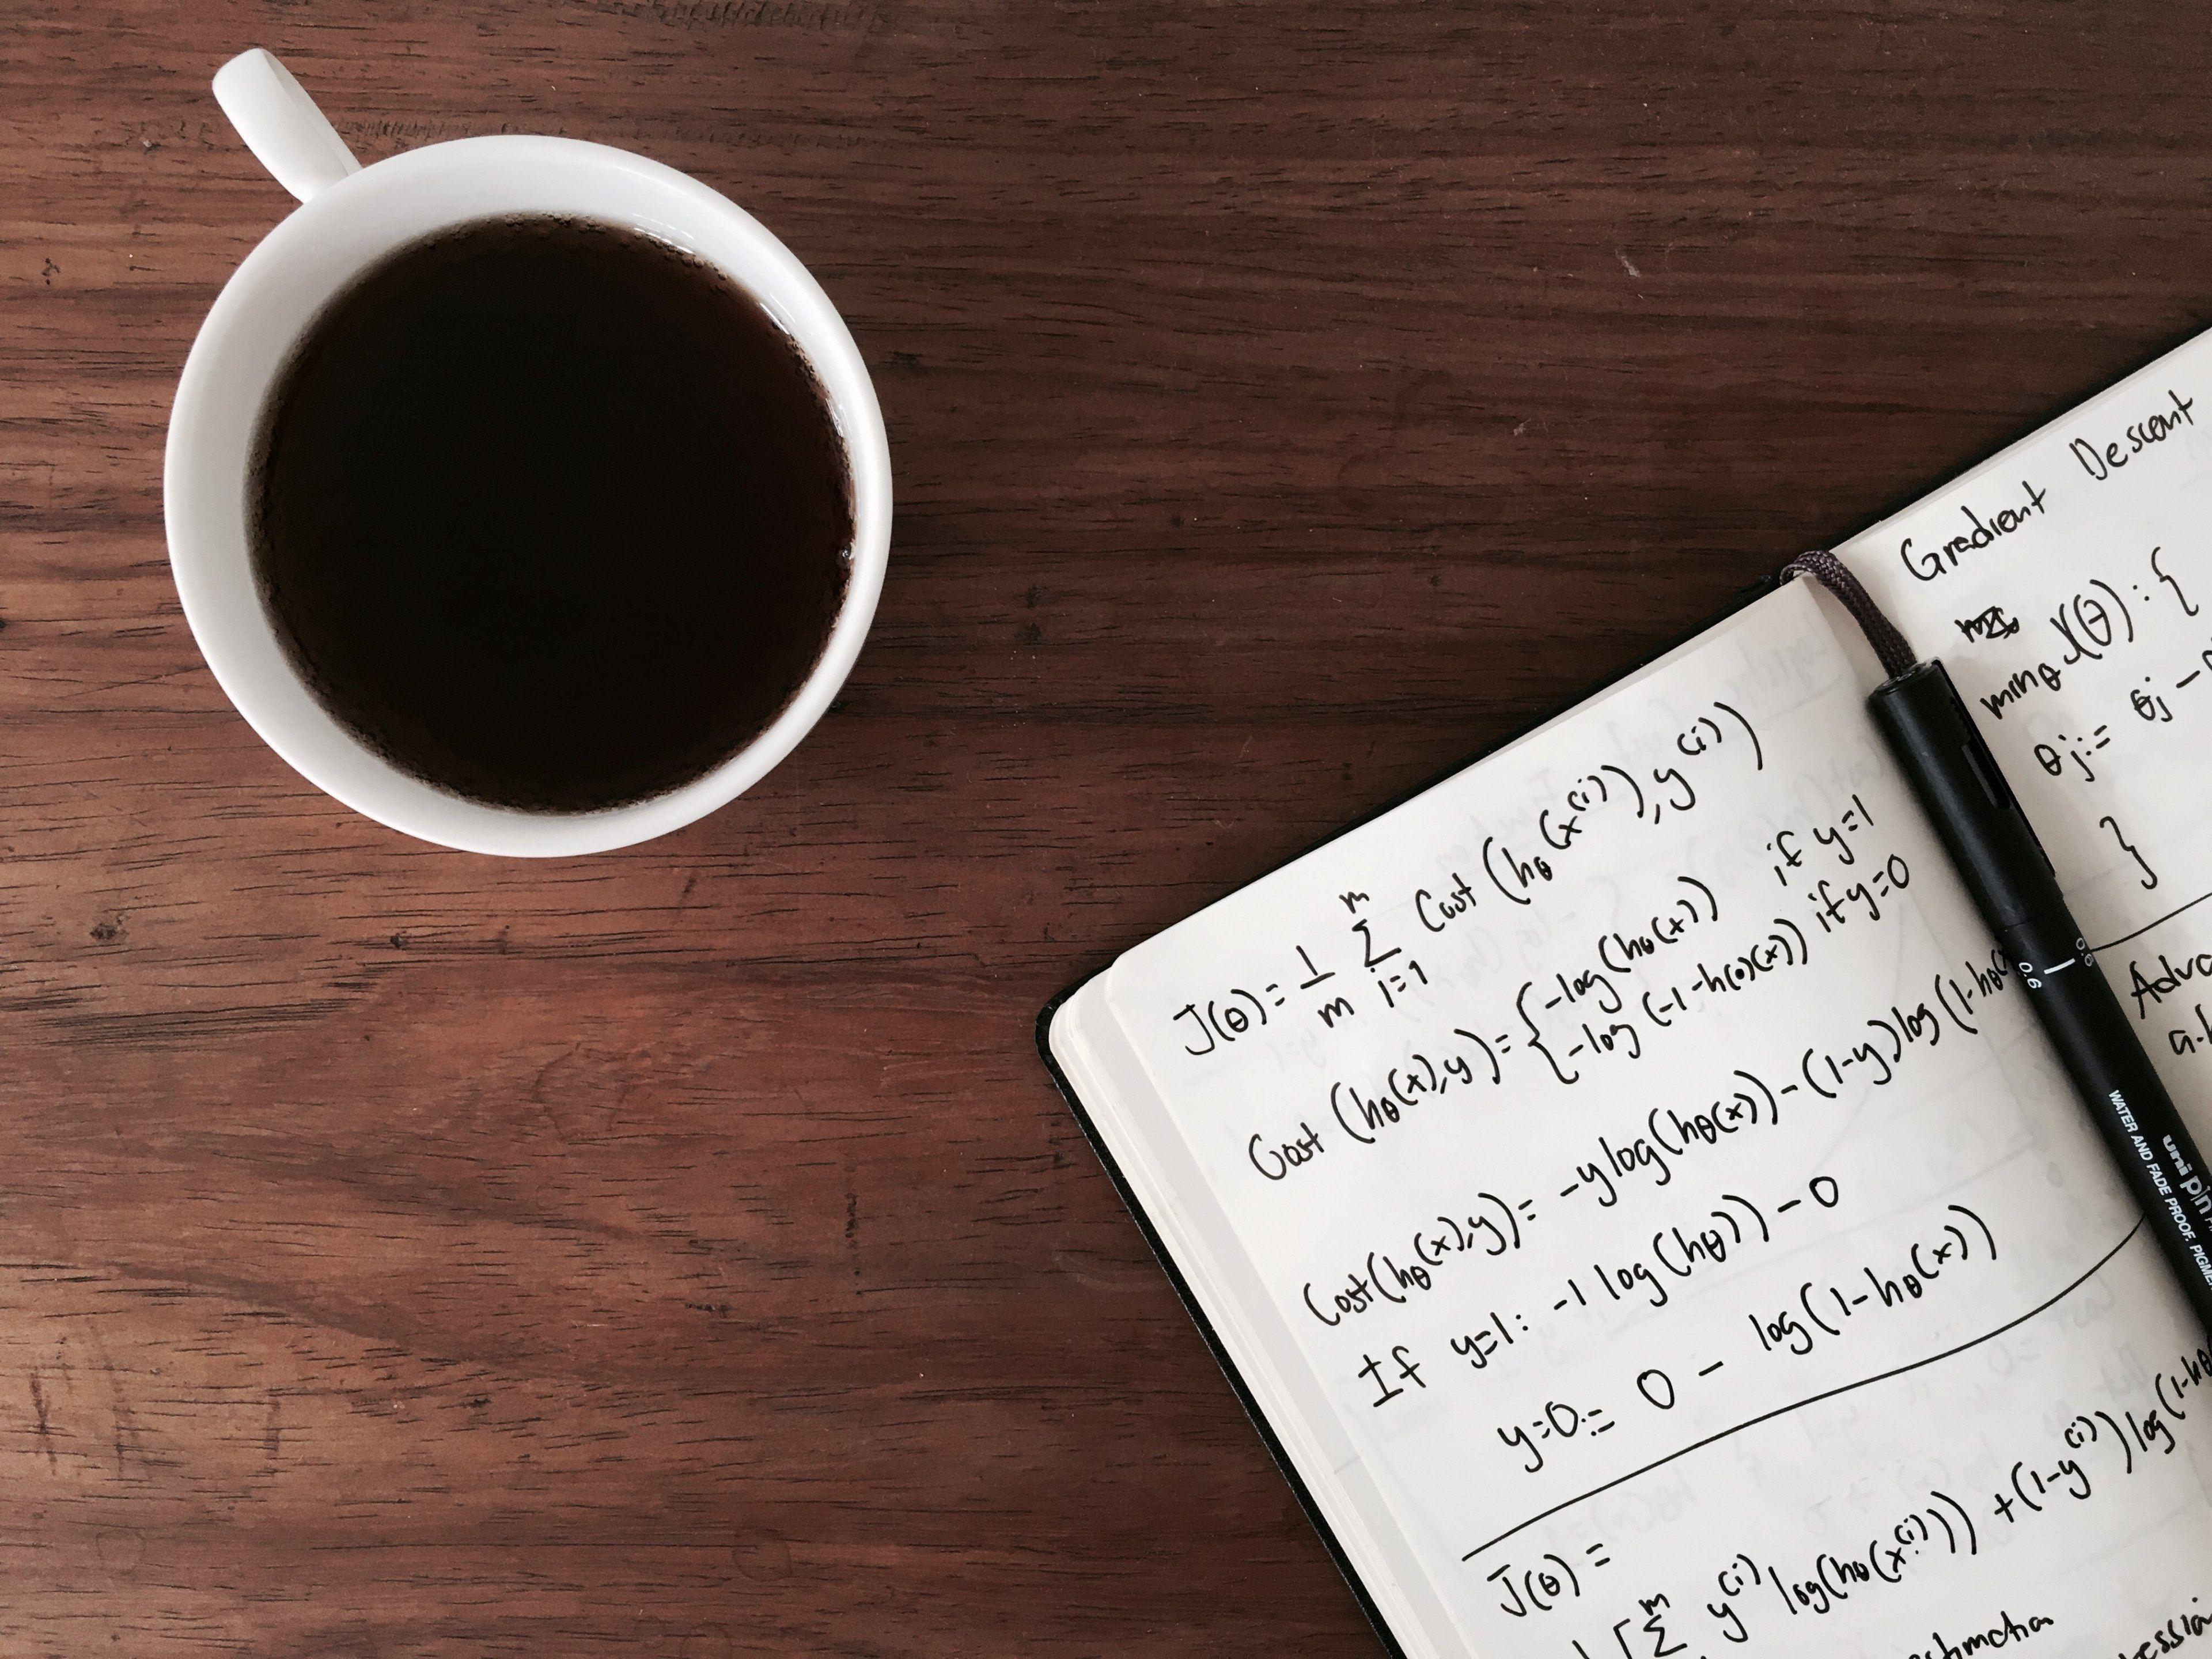 J(θ) = 1/m m Σ i=1 Cost (hθ(x(i)), y(i))
Cost (hθ(x),y) = { -log(hθ(x)) if y=1
-log(-1-h(θ)(x)) if y=0
Cost(hθ(x),y) = -ylog(hθ(x)) - (1-y)log(1-hθ(
If y=1: -1 log(hθ)) - 0
y=0:= 0 - log(1-hθ(x))
J(θ) =
[ m Σ y(i) log(hθ(x(i))) + (1-y(i)) log(1-hθ
Gradient Descent
minθ J(θ): {
θj:= θj -
}
0.6
0.6
uni pin
WATER AND FADE PROOF, PIGME